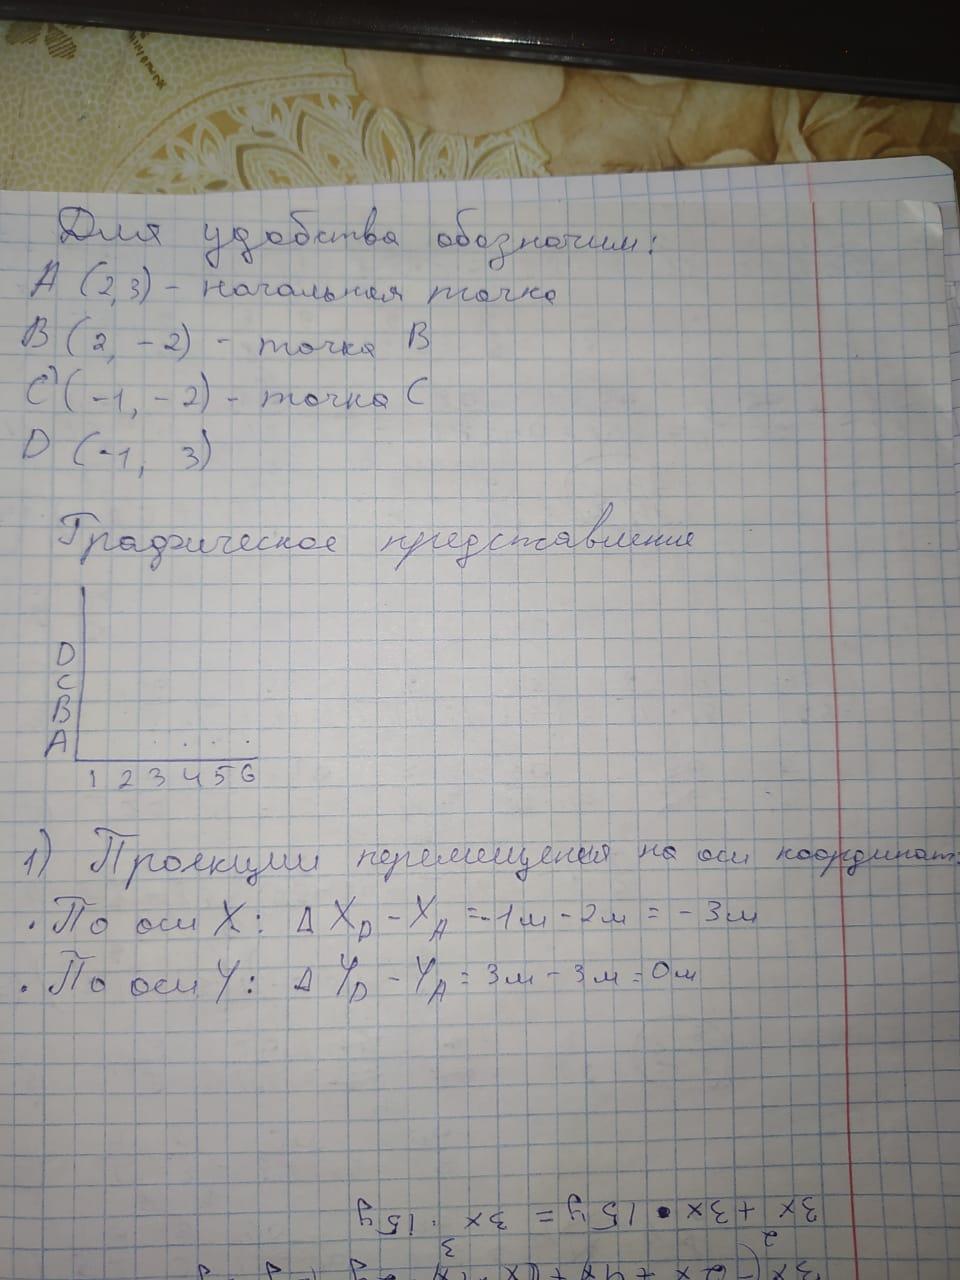 Для удобства обозначим:
A (2,3) - начальная точка
B (2, -2) - точка B
C (-1, -2) - точка C
D (-1, 3)
Графическое представление
D
C
B
A
1 2 3 4 5 6
1) Проекции перемещения на оси координат:
. По оси X: Δ X_D - X_A = -1м - 2м = - 3м
. По оси Y: Δ Y_D - Y_A = 3м - 3м = 0м
3x + 3x • 15y = 3x · 15y